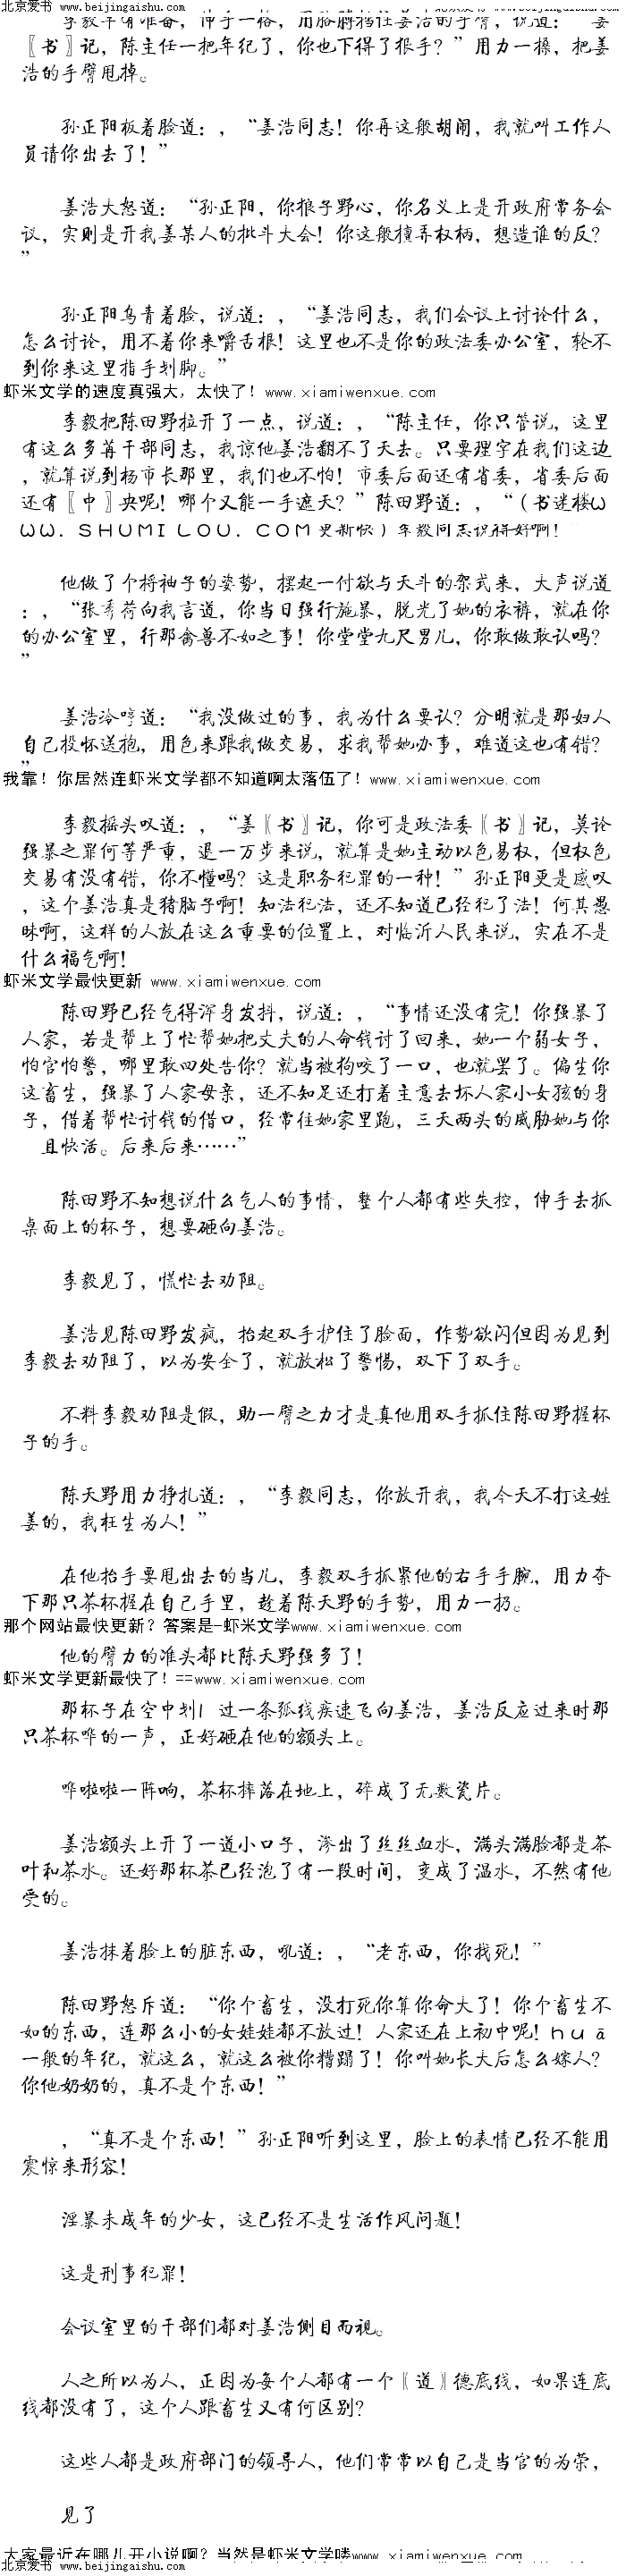 北京爱书 www.beijingaishu.com
李毅早有准备，伸手一格，用胳膊挡住姜浩的手臂，说道：“姜
〖书〗记，陈主任一把年纪了，你也下得了狠手？”用力一操，把姜
浩的手臂甩掉。
孙正阳板着脸道：，“姜浩同志！你再这般胡闹，我就叫工作人
员请你出去了！”
姜浩大怒道：“孙正阳，你狼子野心，你名义上是开政府常务会
议，实则是开我姜某人的批斗大会！你这般擅弄权柄，想造谁的反？
”
孙正阳乌青着脸，说道：，“姜浩同志，我们会议上讨论什么，
怎么讨论，用不着你来嚼舌根！这里也不是你的政法委办公室，轮不
到你来这里指手划脚。”
虾米文学的速度真强大，太快了！www.xiamiwenxue.com
李毅把陈田野拉开了一点，说道：，“陈主任，你只管说，这里
有这么多苒干部同志，我谅他姜浩翻不了天去。只要理字在我们这边
，就算说到杨市长那里，我们也不怕！市委后面还有省委，省委后面
还有〖中〗央呢！哪个又能一手遮天？”陈田野道：，“（书迷楼Ｗ
ＷＷ．ＳＨＵＭＩＬＯＵ．ＣＯＭ更新快）李毅同志说得好啊！”
他做了个捋袖子的姿势，摆起一付欲与天斗的架式来，大声说道
：，“张秀荷向我言道，你当日强行施暴，脱光了她的衣裤，就在你
的办公室里，行那禽兽不如之事！你堂堂九尺男儿，你敢做敢认吗？
”
姜浩冷哼道：“我没做过的事，我为什么要认？分明就是那妇人
自己投怀送抱，用色来跟我做交易，求我帮她办事，难道这也有错？
”
我靠！你居然连虾米文学都不知道啊太落伍了！www.xiamiwenxue.com
李毅摇头叹道：，“姜〖书〗记，你可是政法委〖书〗记，莫论
强暴之罪何等严重，退一万步来说，就算是她主动以色易权，但权色
交易有没有错，你不懂吗？这是职务犯罪的一种！”孙正阳更是感叹
，这个姜浩真是猪脑子啊！知法犯法，还不知道已经犯了法！何其愚
昧啊，这样的人放在这么重要的位置上，对临沂人民来说，实在不是
什么福气啊！
虾米文学最快更新 www.xiamiwenxue.com
陈田野已经气得浑身发抖，说道：，“事情还没有完！你强暴了
人家，若是帮上了忙帮她把丈夫的人命钱讨了回来，她一个弱女子，
怕官怕警，哪里敢四处告你？就当被狗咬了一口，也就罢了。偏生你
这畜生，强暴了人家母亲，还不知足还打着主意去坏人家小女孩的身
子，借着帮忙讨钱的借口，经常往她家里跑，三天两头的威胁她与你
且快活。后来后来……”
陈田野不知想说什么气人的事情，整个人都有些失控，伸手去抓
桌面上的杯子，想要砸向姜浩。
李毅见了，慌忙去劝阻。
姜浩见陈田野发疯，抬起双手护住了脸面，作势欲闪但因为见到
李毅去劝阻了，以为安全了，就放松了警惕，双下了双手。
不料李毅劝阻是假，助一臂之力才是真他用双手抓住陈田野握杯
子的手。
陈天野用力挣扎道：，“李毅同志，你放开我，我今天不打这姓
姜的，我枉生为人！”
在他抬手要甩出去的当儿，李毅双手抓紧他的右手手腕，用力夺
下那只茶杯握在自己手里，趁着陈天野的手势，用力一扔。
那个网站最快更新？答案是-虾米文学www.xiamiwenxue.com
他的臂力的准头都比陈天野强多了！
虾米文学更新最快了！==www.xiamiwenxue.com
那杯子在空中划1 过一条弧线疾速飞向姜浩，姜浩反应过来时那
只茶杯哗的一声，正好砸在他的额头上。
哗啦啦一阵响，茶杯摔落在地上，碎成了无数瓷片。
姜浩额头上开了一道小口子，渗出了丝丝血水，满头满脸都是茶
叶和茶水。还好那杯茶已经泡了有一段时间，变成了温水，不然有他
受的。
姜浩抹着脸上的脏东西，吼道：，“老东西，你找死！”
陈田野怒斥道：“你个畜生，没打死你算你命大了！你个畜生不
如的东西，连那么小的女娃娃都不放过！人家还在上初中呢！ｈｕā
一般的年纪，就这么，就这么被你糟蹋了！你叫她长大后怎么嫁人？
你他奶奶的，真不是个东西！”
，“真不是个东西！”孙正阳听到这里，脸上的表情已经不能用
震惊来形容！
淫暴未成年的少女，这已经不是生活作风问题！
这是刑事犯罪！
会议室里的干部们都对姜浩侧目而视。
人之所以为人，正因为每个人都有一个〖道〗德底线，如果连底
线都没有了，这个人跟畜生又有何区别？
这些人都是政府部门的领导人，他们常常以自己是当官的为荣，
见了
大家最近在哪儿开小说啊？当然是虾米文学喽www.xiamiwenxue.com
北京爱书 www.beijingaishu.com